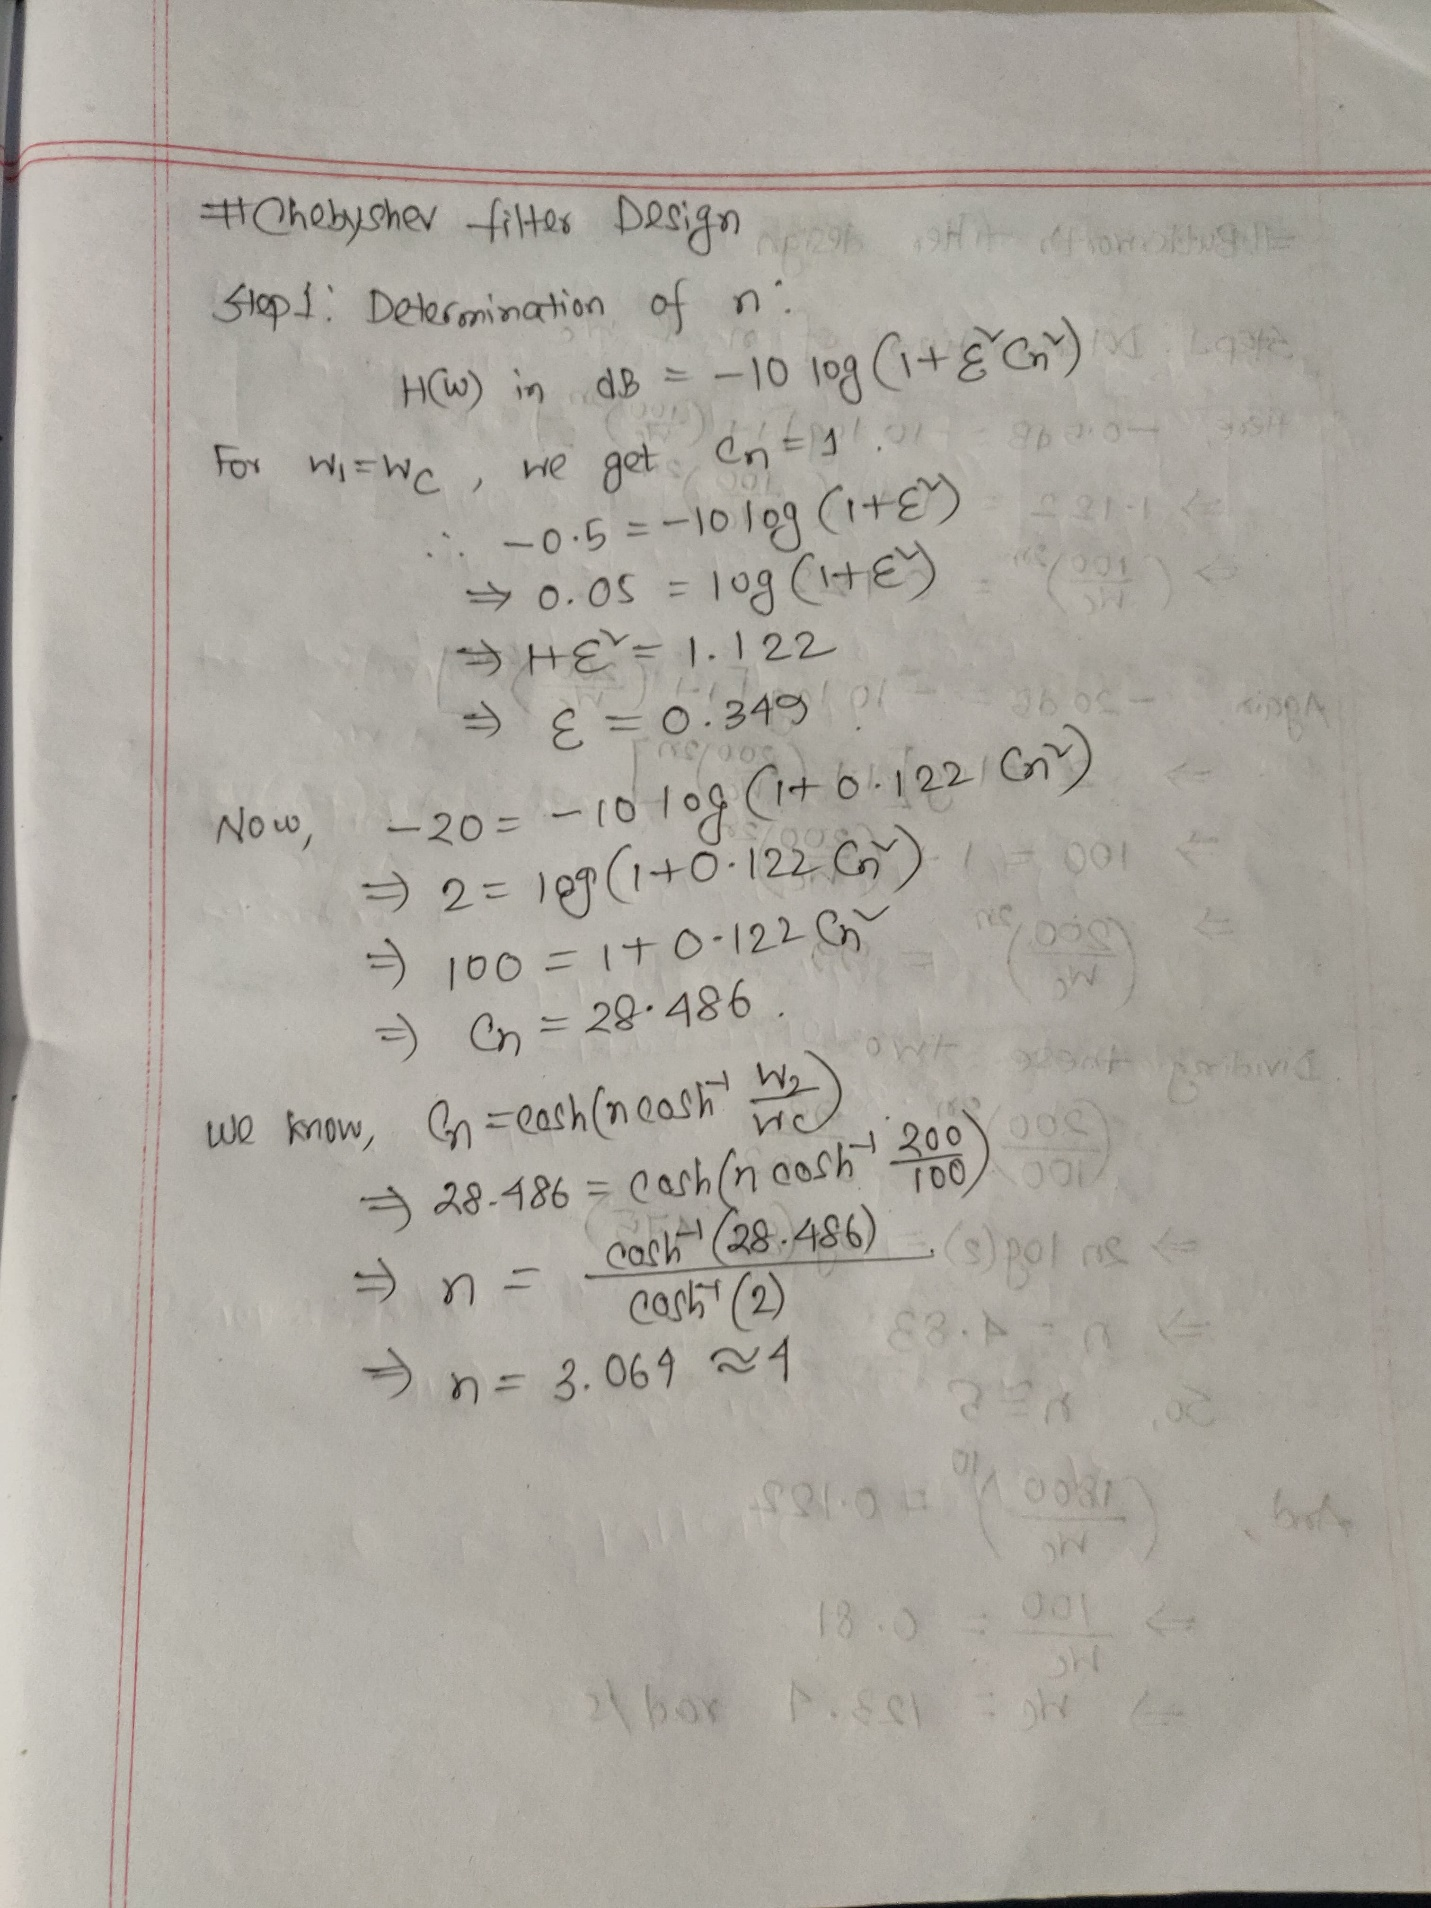 # Chebyshev filter Design
Step 1: Determination of n:
H(w) in dB = -10 log (1+ ε² Cn²)
For w₁=wc, we get Cn = 1.
∴ -0.5 = -10 log (1+ε²)
⇒ 0.05 = log (1+ε²)
⇒ 1+ε² = 1.122
⇒ ε = 0.349.
Now, -20 = -10 log (1+ 0.122 Cn²)
⇒ 2 = log (1+0.122 Cn²)
⇒ 100 = 1+ 0.122 Cn²
⇒ Cn = 28.486.
we know, Cn = cosh(n cosh⁻¹ w₂/wc)
⇒ 28.486 = cosh(n cosh⁻¹ 200/100)
⇒ n = cosh⁻¹(28.486)/cosh⁻¹(2).
⇒ n = 3.064 ≈ 4